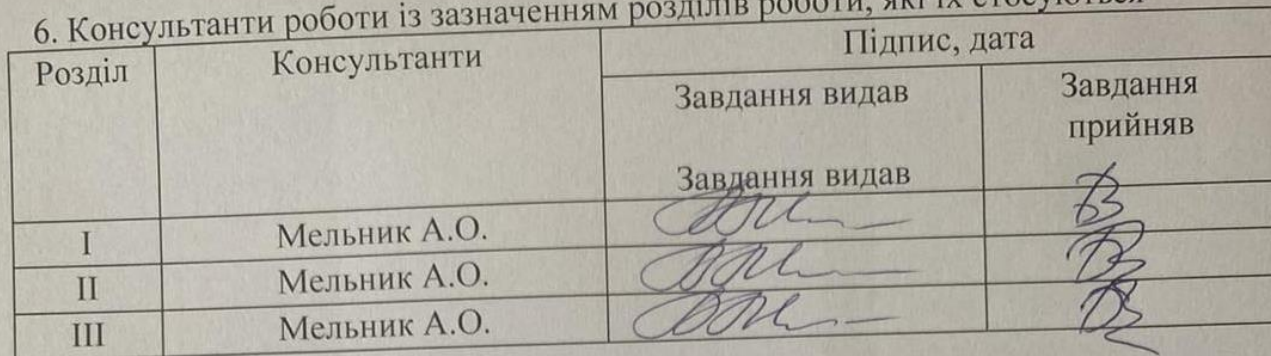 6. Консультанти роботи із зазначенням розділів роботи, які їх стосуються
Розділ Консультанти Підпис, дата
Завдання видав Завдання
прийняв
Завдання видав
I Мельник А.О.
II Мельник А.О.
III Мельник А.О.